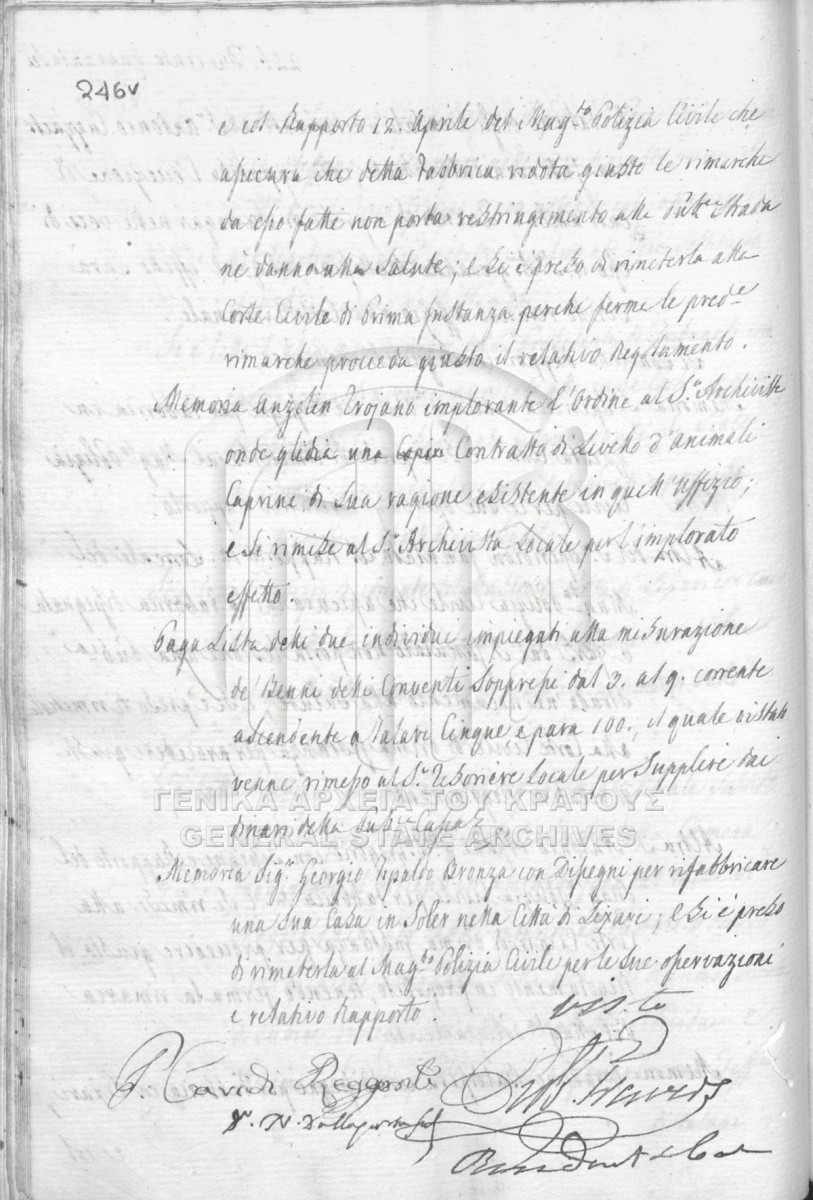 246v
e col Rapporto 12. Aprile del Mag.to Polizia Civile che
assicura che detta Fabbrica ridota giusto le rimarche
da esso fatte non porta restringimento alla Pub.e Strada
nè danno alla Salute; e si è preso di rimeterla alla
Corte Civile di Prima Instanza perche ferme le pred.e
rimarche proceda giusto il relativo Regolamento.
Memoria Anzolin Trojano implorante l'Ordine al S.r Archivista
onde gli dia una Copia Contratto di Livello d'animali
Caprini di Sua ragione esistente in quell'Uffizio;
e si rimesse al S.r Archivista Locale per l'implorato
effetto.
Paga Lista delli due individui impiegati alla misurazione
de' Benni delli Conventi Soppressi dal 3. al 9. corrente
ascendente a Talari Cinque e para 100., il quale
venne rimesso al S.r Tesoriere Locale per Supplire dai
dinari della Sud.a Cassa
ΓΕΝΙΚΑ ΑΡΧΕΙΑ ΤΟΥ ΚΡΑΤΟΥΣ
GENERAL STATE ARCHIVES
Memoria Sig.r Georgio Bronza con Dissegni per rifabbricare
una Sua Casa in Soler nella Città di Lixuri; e si è preso
di rimeterla al Mag.to Polizia Civile per le Sue osservazioni
e relativo Rapporto.
visto
Reggente